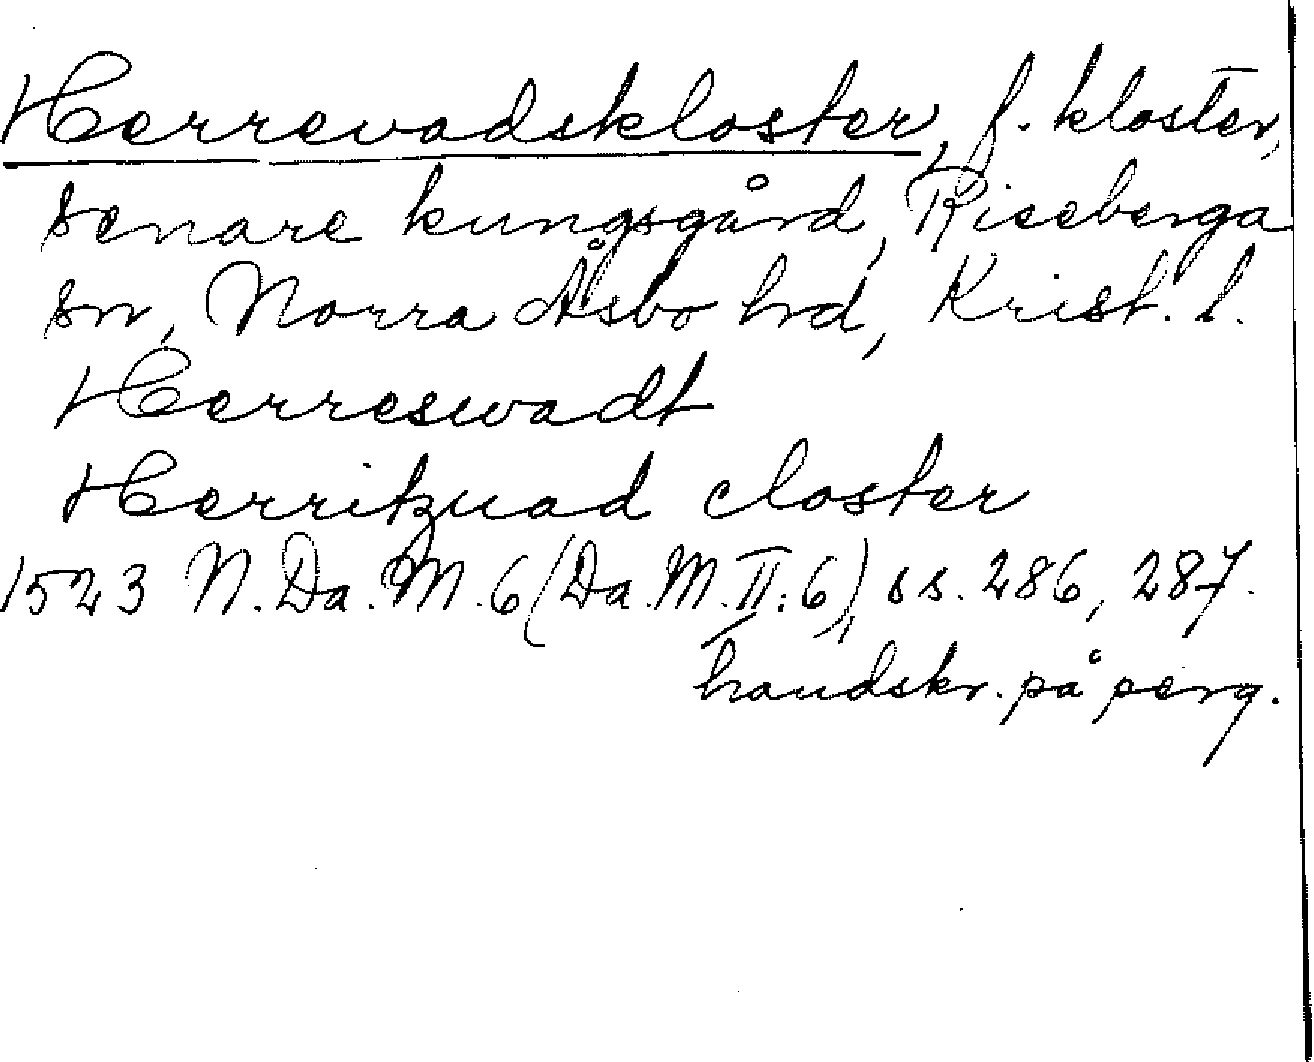 Herrevadskloster, f. kloster,
senare kungsgård, Riseberga
sn, Norra Åsbo hd, Krist. l.
Herreswadt
Herritzuad closter
1523 N. Da. M. 6 (Da. M. II: 6), ss. 286, 287.
handskr. på perg.